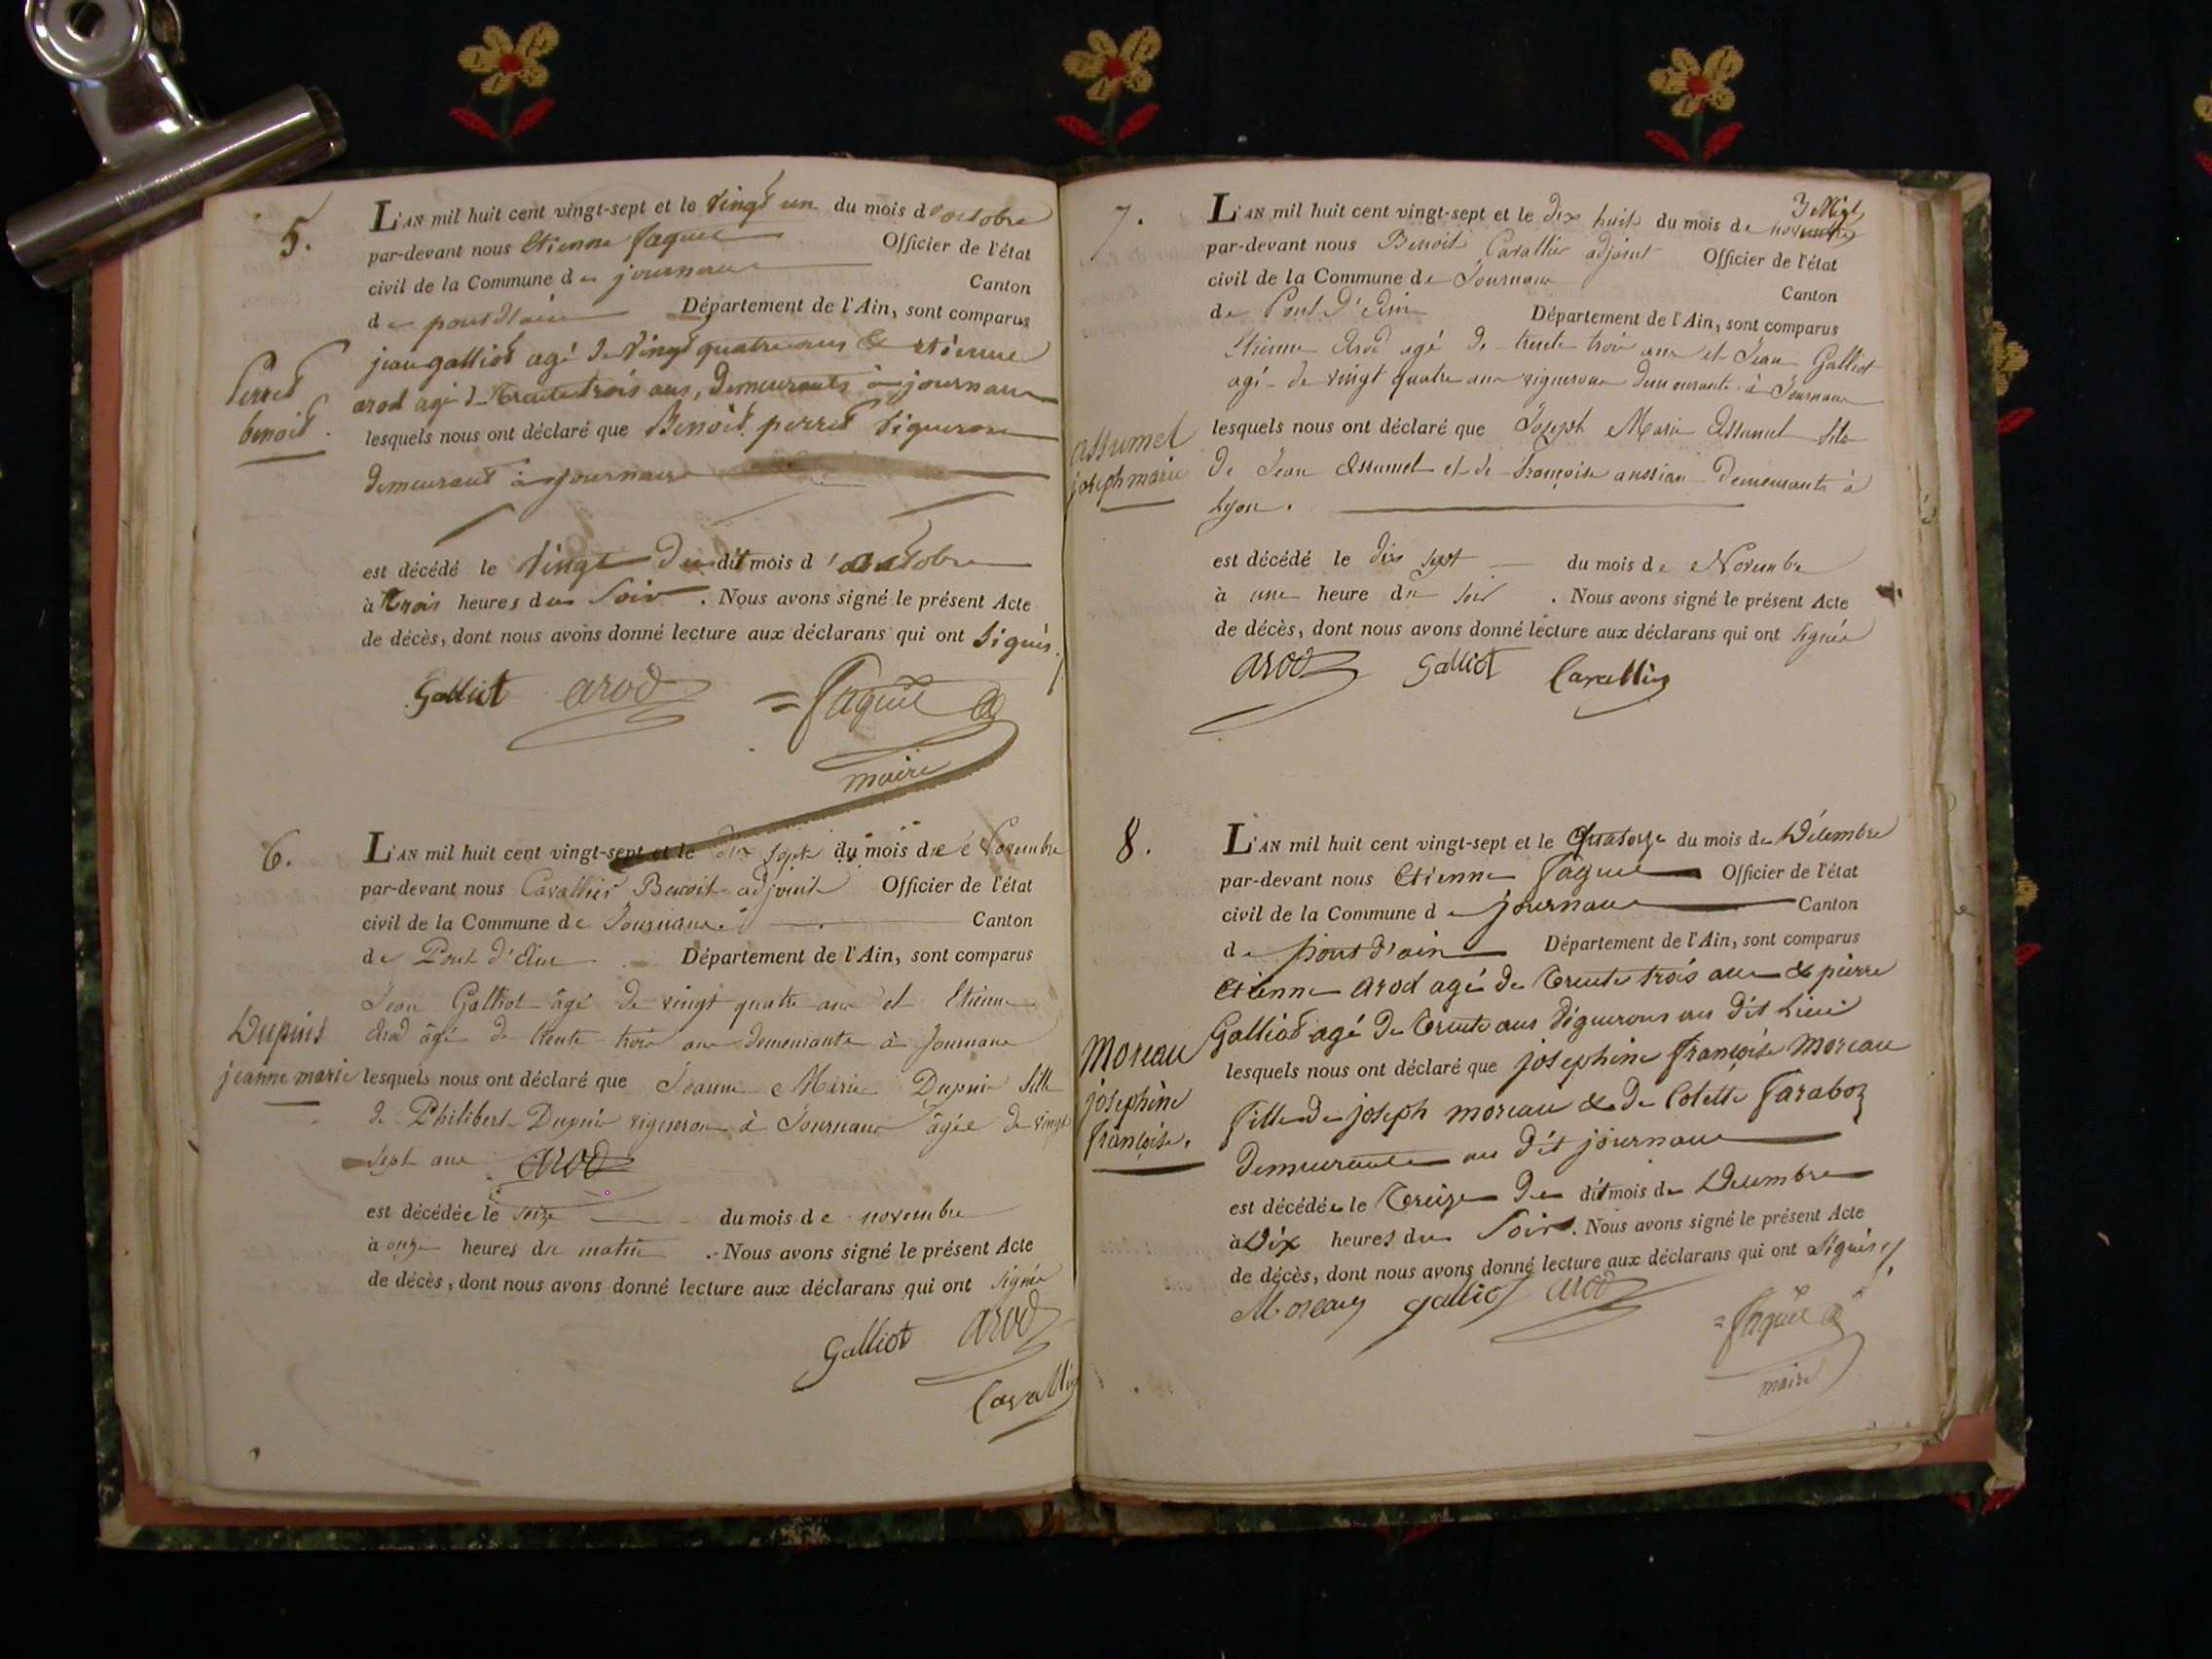 5.
L'AN mil huit cent vingt-sept et le vingt un du mois d'octobre
par-devant nous Etienne faguet Officier de l'état
civil de la Commune de journans Canton
de pont d'ain Département de l'Ain, sont comparus
jean galliot agé de vingt quatre ans & etienne
arod agé de trente trois ans, demeurants à journans
Perret
benoit.
lesquels nous ont déclaré que Benoit perret vigneron
demeurant à journans
est décédé le vingt du dit mois d'octobre
à trois heures du soir. Nous avons signé le présent Acte
de décès, dont nous avons donné lecture aux déclarans qui ont signés.
Galliot arod
maire
6.
L'AN mil huit cent vingt-sept et le dix sept du mois de Novembre
par-devant nous Cavallier Benoit adjoint Officier de l'état
civil de la Commune de Journans. Canton
de Pont d'Ain Département de l'Ain, sont comparus
Jean Galliot âgé de vingt quatre ans et Etienne
Arod âgé de trente trois ans demeurants à Journans
Dupuis
jeanne marie
lesquels nous ont déclaré que Jeanne Marie Dupuis fille
de Philibert Dupuis vigneron à Journans âgée de vingt
sept ans arod
est décédée le seize du mois de novembre
à onze heures du matin. Nous avons signé le présent Acte
de décès, dont nous avons donné lecture aux déclarans qui ont signés
Galliot arod
Cavallier
7.
L'AN mil huit cent vingt-sept et le dix huit du mois de novembre
par-devant nous Benoit Cavallier adjoint Officier de l'état
civil de la Commune de Journans Canton
de Pont d'Ain Département de l'Ain, sont comparus
Etienne Arod agé de trente trois ans et Jean Galliot
agé de vingt quatre ans vignerons demeurants à Journans
assumel
joseph marie
lesquels nous ont déclaré que Joseph Marie Assumel fils
de Jean Assumel et de Françoise demeurants à
Lyon.
est décédé le dix sept du mois de Novembre
à une heure du soir. Nous avons signé le présent Acte
de décès, dont nous avons donné lecture aux déclarans qui ont signés
arod Galliot Cavallier
8.
L'AN mil huit cent vingt-sept et le Quatorze du mois de Décembre
par-devant nous Etienne faguet Officier de l'état
civil de la Commune de journans Canton
de pont d'ain Département de l'Ain, sont comparus
etienne arod agé de trente trois ans & pierre
Galliot agé de trente ans vignerons au dit lieu
Moreau
josephine
françoise.
lesquels nous ont déclaré que josephine françoise moreau
fille de joseph moreau & de Colette faraboz
demeurante au dit journans
est décédée le treize du dit mois de Décembre
à Dix heures du soir. Nous avons signé le présent Acte
de décès, dont nous avons donné lecture aux déclarans qui ont signés
Moreau galliot arod
maire